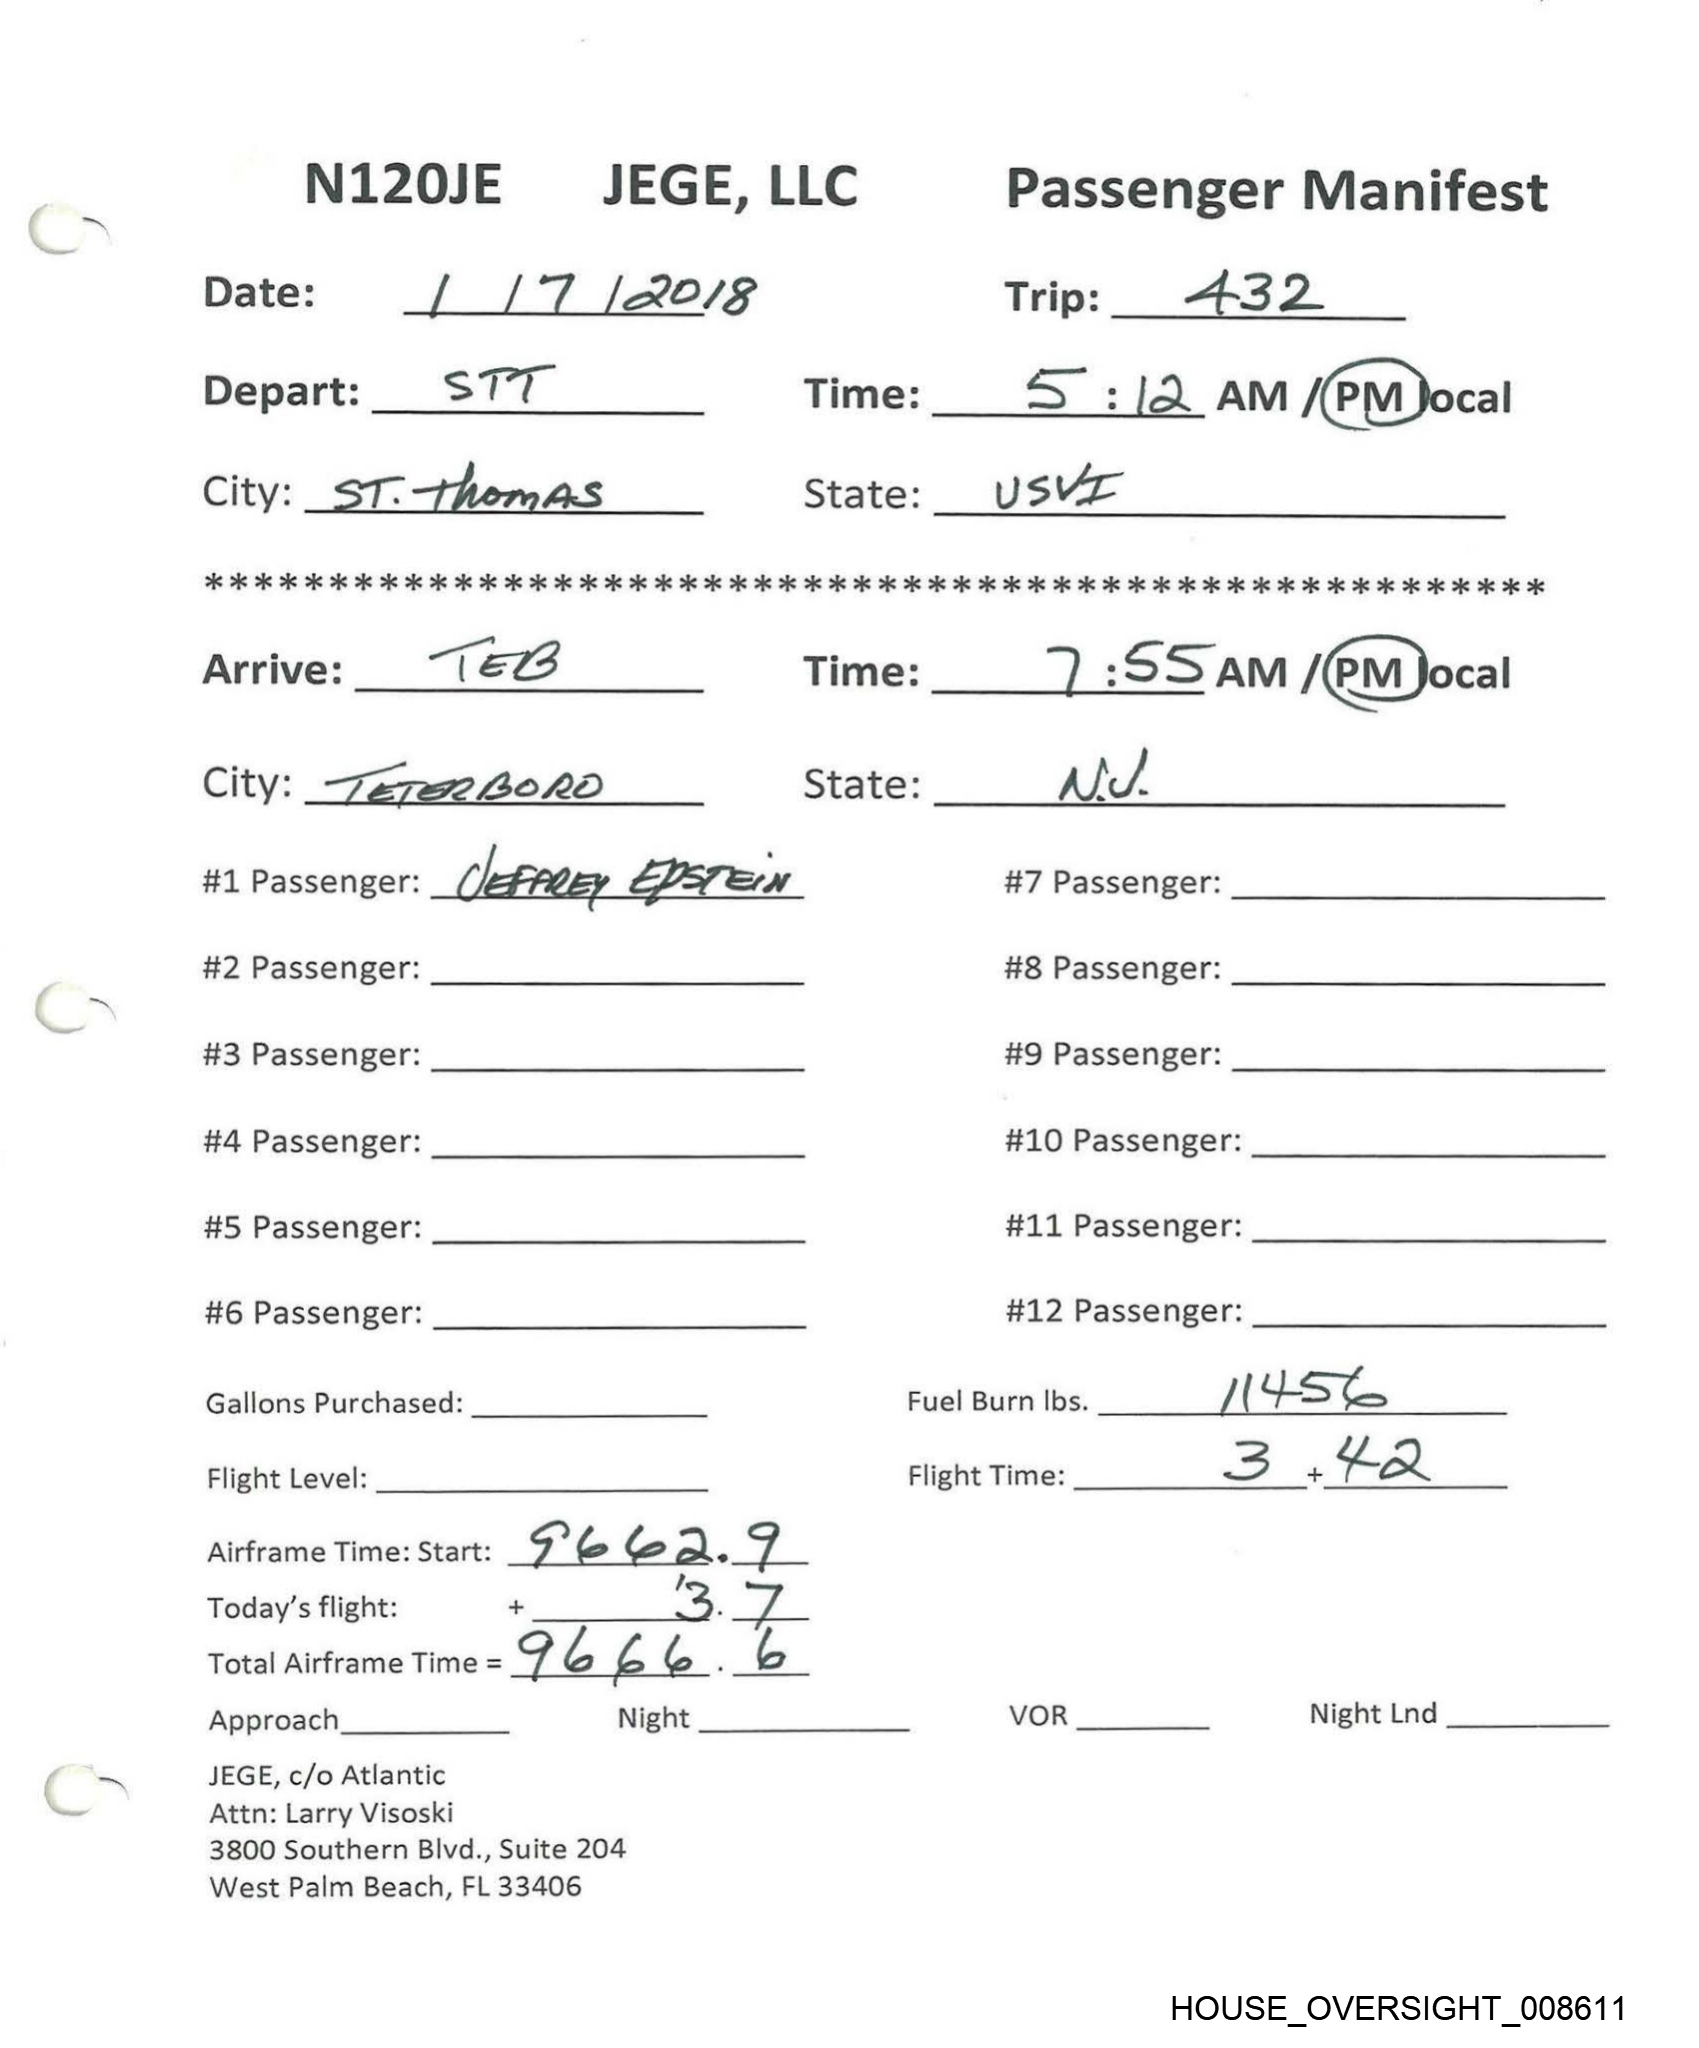 N120JE JEGE, LLC Passenger Manifest
Date: 1 / 7 / 2018 Trip: 432
Depart: STT Time: 5 : 12 AM / PM local
City: ST. Thomas State: USVI
******************************************************
Arrive: TEB Time: 7 : 55 AM / PM local
City: TETERBORO State: N.J.
#1 Passenger: JEFFREY EPSTEIN #7 Passenger:
#2 Passenger: #8 Passenger:
#3 Passenger: #9 Passenger:
#4 Passenger: #10 Passenger:
#5 Passenger: #11 Passenger:
#6 Passenger: #12 Passenger:
Gallons Purchased: Fuel Burn lbs. 11456
Flight Level: Flight Time: 3 + 42
Airframe Time: Start: 9662.9
Today's flight: + 3.7
Total Airframe Time = 9666.6
Approach Night VOR Night Lnd
JEGE, c/o Atlantic
Attn: Larry Visoski
3800 Southern Blvd., Suite 204
West Palm Beach, FL 33406
HOUSE_OVERSIGHT_008611